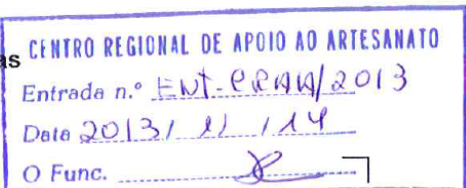 as CENTRO REGIONAL DE APOIO AO ARTESANATO
Entrada n.º ENT-CRAA/2013
Data 2013/ 11 /14
O Func.